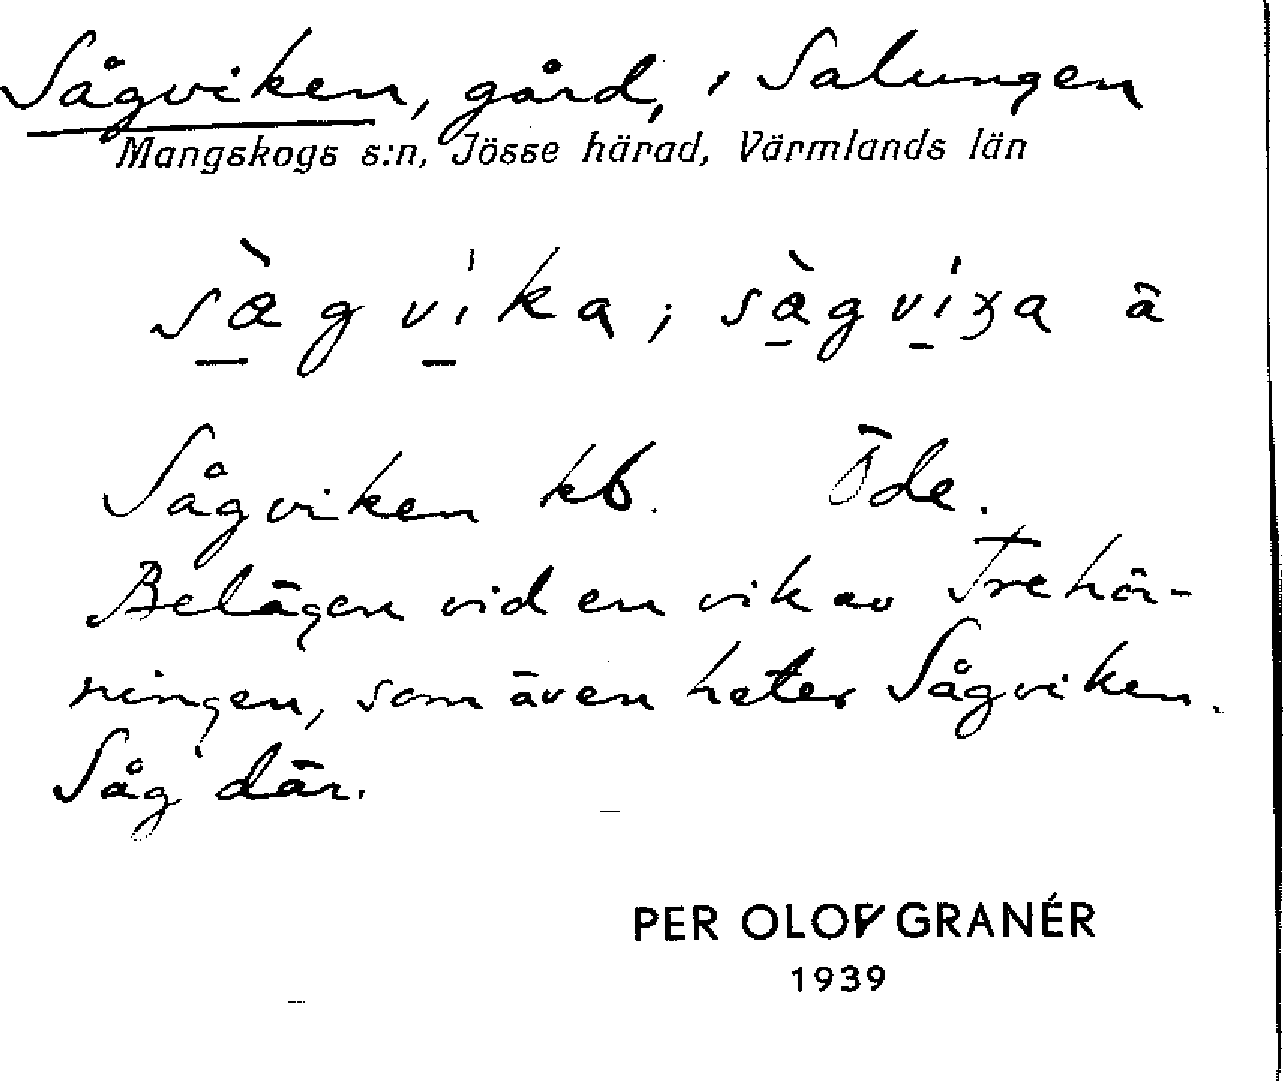 Sågviken, gård, i Salungen
Mangskogs s:n, Jösse härad, Värmlands län
sàgvika; sàgviʒa ä
Sågviken kb. Öde.
Belägen vid en vik av Trehör-
ningen, som även heter Sågviken.
Såg där.
PER OLOV GRANÉR
1939